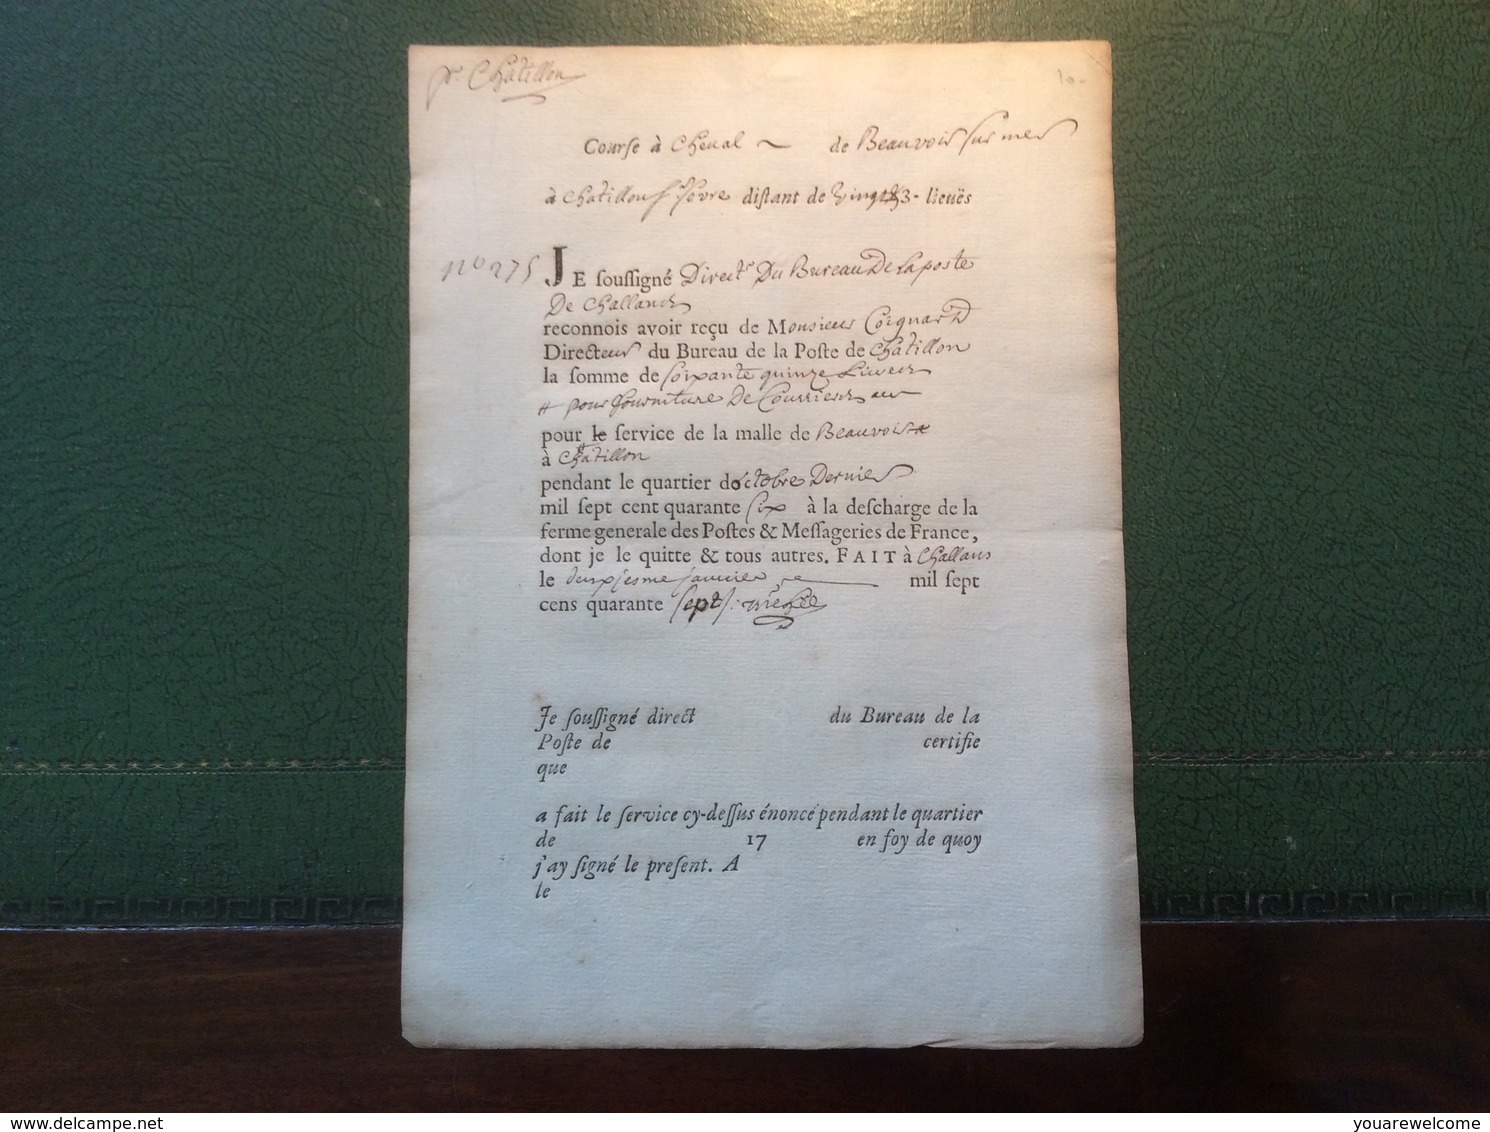 pr. Chatillon
10-
Courſe à Cheval ~ de Beauvoir ſur mer
à Chatillon ſ. ſevre diſtant de vingt 3- lieuës
no 275
JE ſouſſigné Directr. Du Bureau De la poste
De Challans
reconnois avoir reçu de Monsieur Coignard
Directeur du Bureau de la Poſte de Chatillon
la ſomme de ſoixante quinze Livres
# pour fourniture De Courriers
pour le ſervice de la malle de Beauvoir
à Chatillon
pendant le quartier doctobre Dernier
mil ſept cent quarante ſix à la deſcharge de la
ferme generale des Poſtes & Meſſageries de France,
dont je le quitte & tous autres. FAIT à Challans
le deuxiesme janvier mil ſept
cens quarante ſept ſ.
Je ſouſſigné direct du Bureau de la
Poſte de certifie
que
a fait le ſervice cy-deſſus énoncé pendant le quartier
de 17 en foy de quoy
j'ay ſigné le preſent. A
le
delcampe.net
youarewelcome